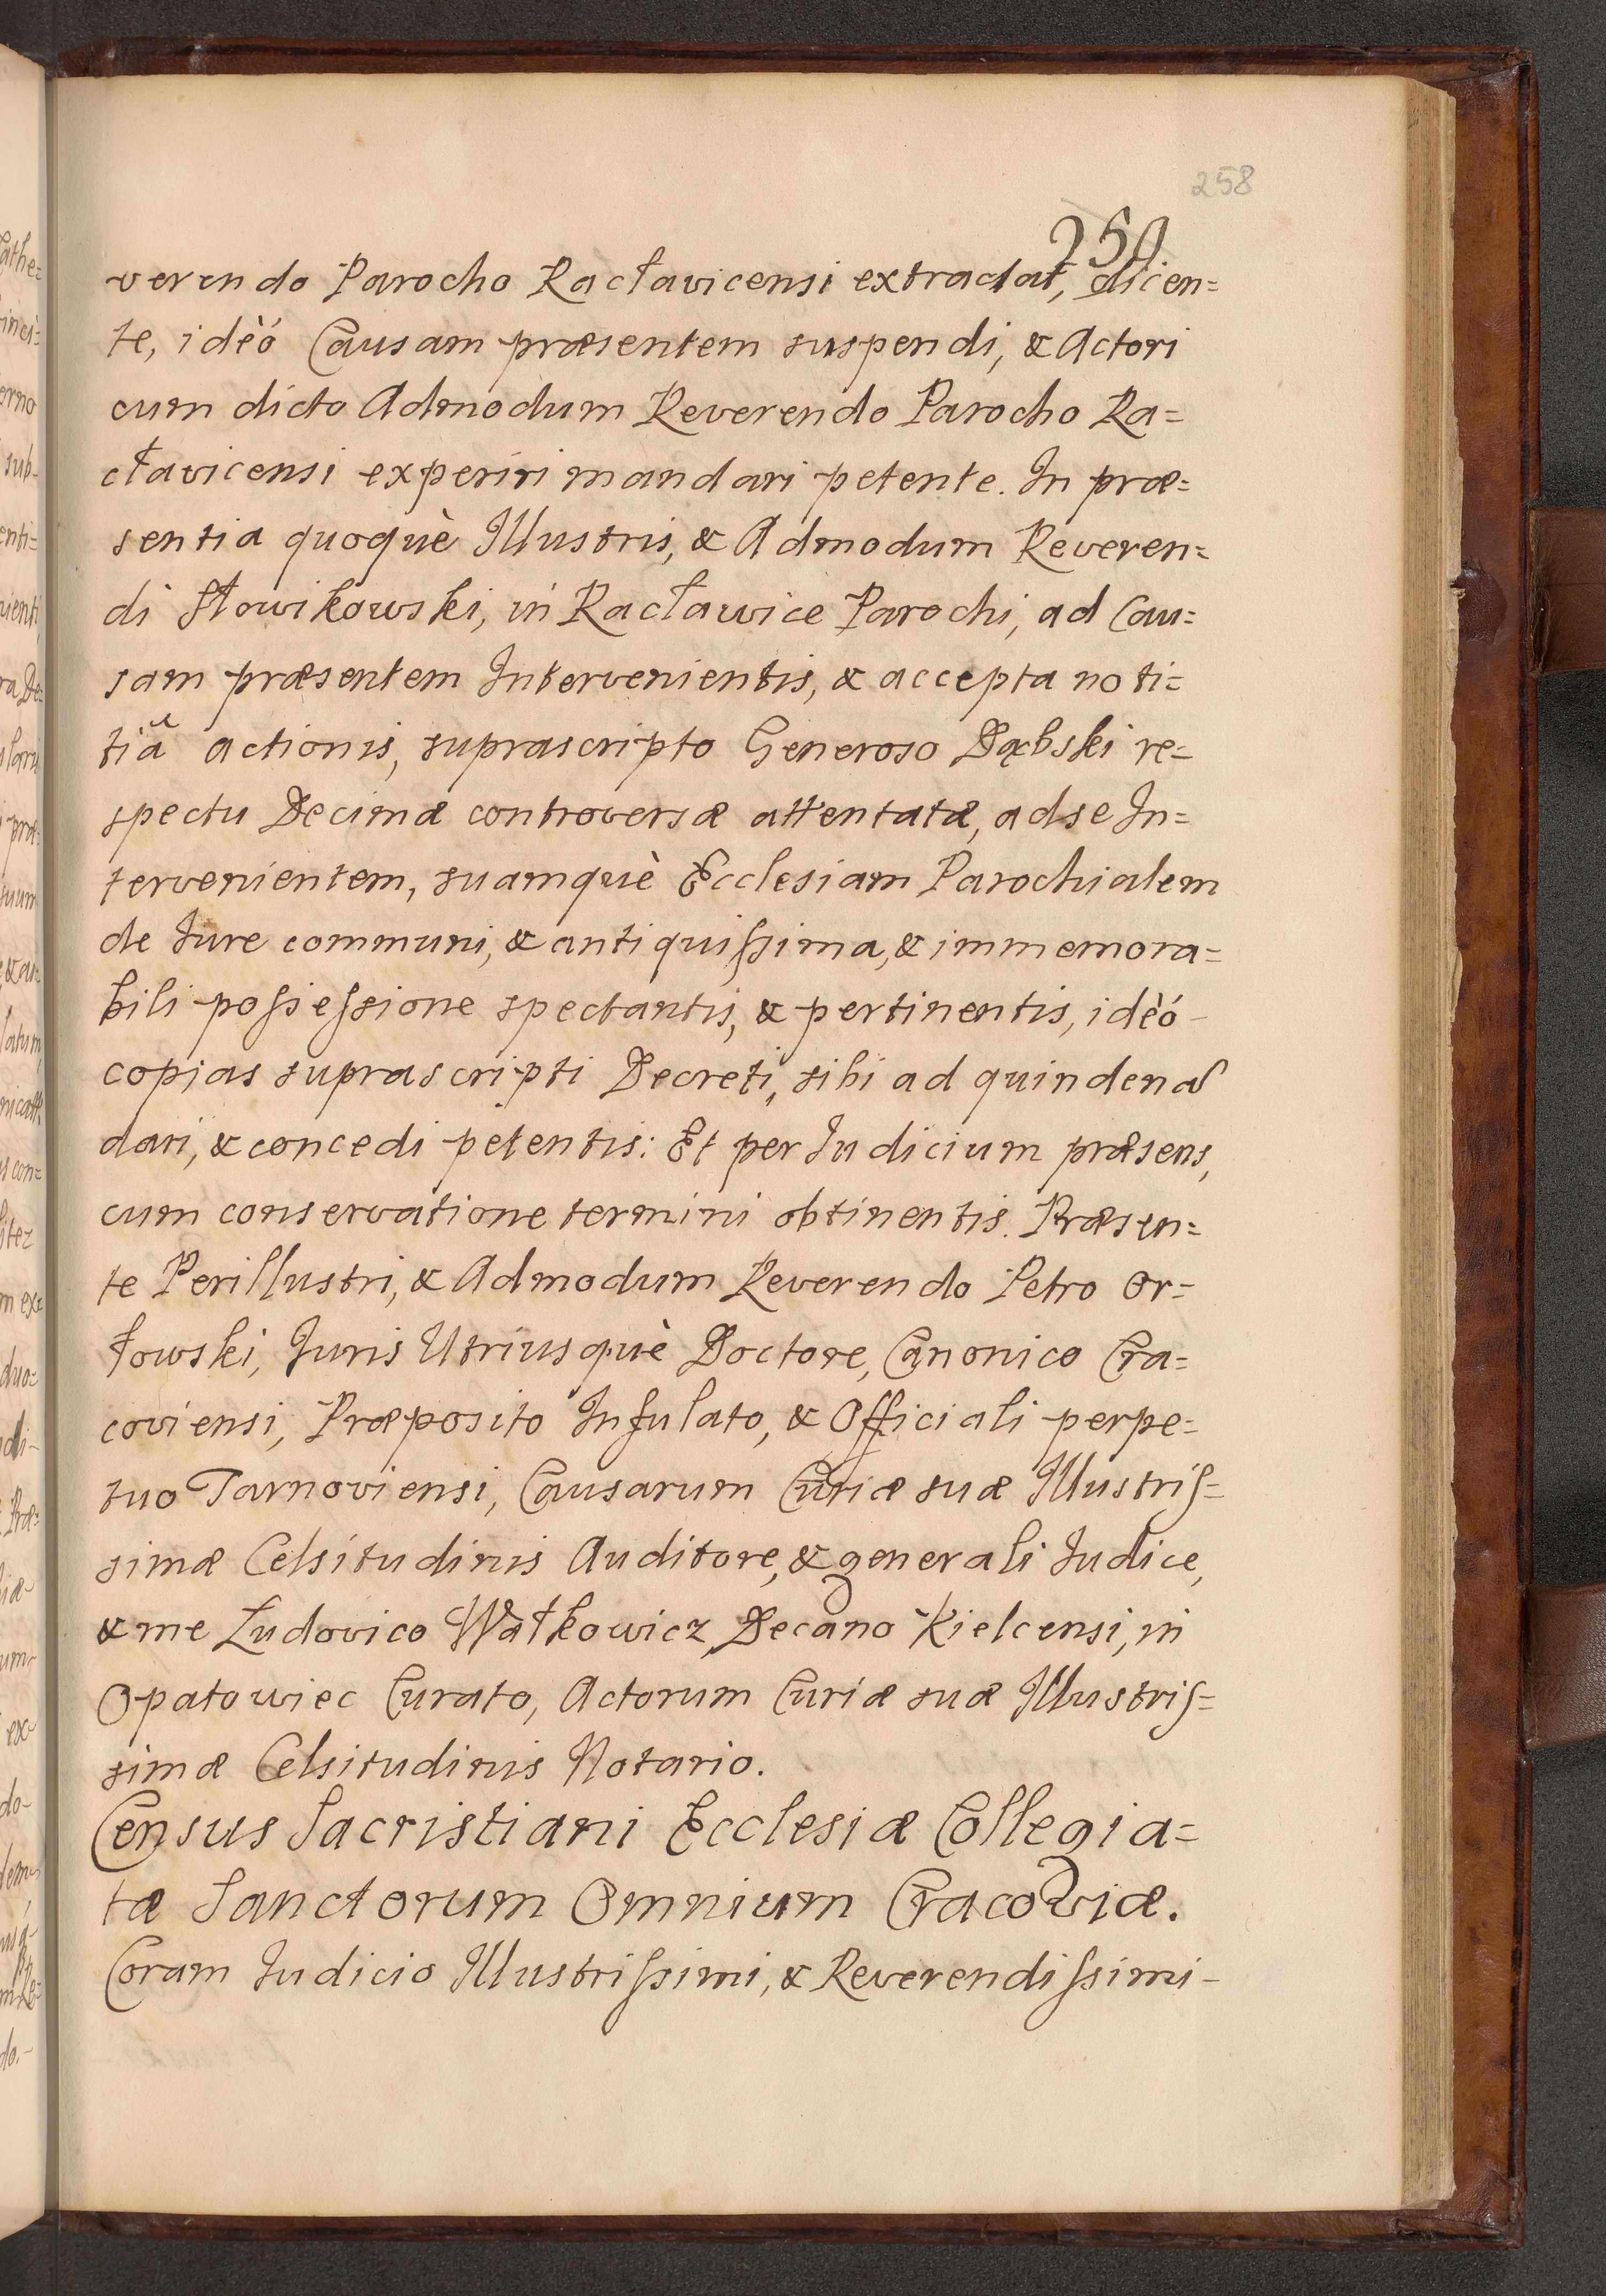 258
250
verendo Parocho Racławicensi extradat, dicen=
te, idèó Causam præsentem suspendi, & Actori
cum dicto Admodum Reverendo Parocho Ra=
cławicensi experiri mandari petente. In præ=
sentia quoquè Illustris, & Admodum Reveren=
di Słowikowski, in Racławice Parochi, ad Cau=
sam præsentem Intervenientis, & accepta noti=
tiâ actionis, suprascripto Generoso Dąbski re=
spectu Decimæ controversæ attentatæ, ad se In=
tervenientem, suamquè Ecclesiam Parochialem
de Iure communi, & antiquissima, & immemora=
bili possessione spectantis, & pertinentis, idèó
copias suprascripti Decreti, sibi ad quindenas
dari, & concedi petentis: Et per Iudicium præsens,
cum conservatione termini obtinentis. Præsen=
te Perillustri, & Admodum Reverendo Petro Or=
łowski, Iuris Utriusquè Doctore, Canonico Cra=
coviensi, Præposito Infulato, & Officiali perpe=
tuo Tarnoviensi, Causarum Curiæ suæ Illustris=
simæ Celsitudinis Auditore, & generali Iudice,
& me Ludovico Wałkowicz, Decano Kielcensi, in
Opatowiec Curato, Actorum Curiæ suæ Illustris=
simæ Celsitudinis Notario.
Census Sacristiani Ecclesiæ Collegia=
tæ Sanctorum Omnium Cracoviæ.
Coram Iudicio Illustrissimi, & Reverendissimi-